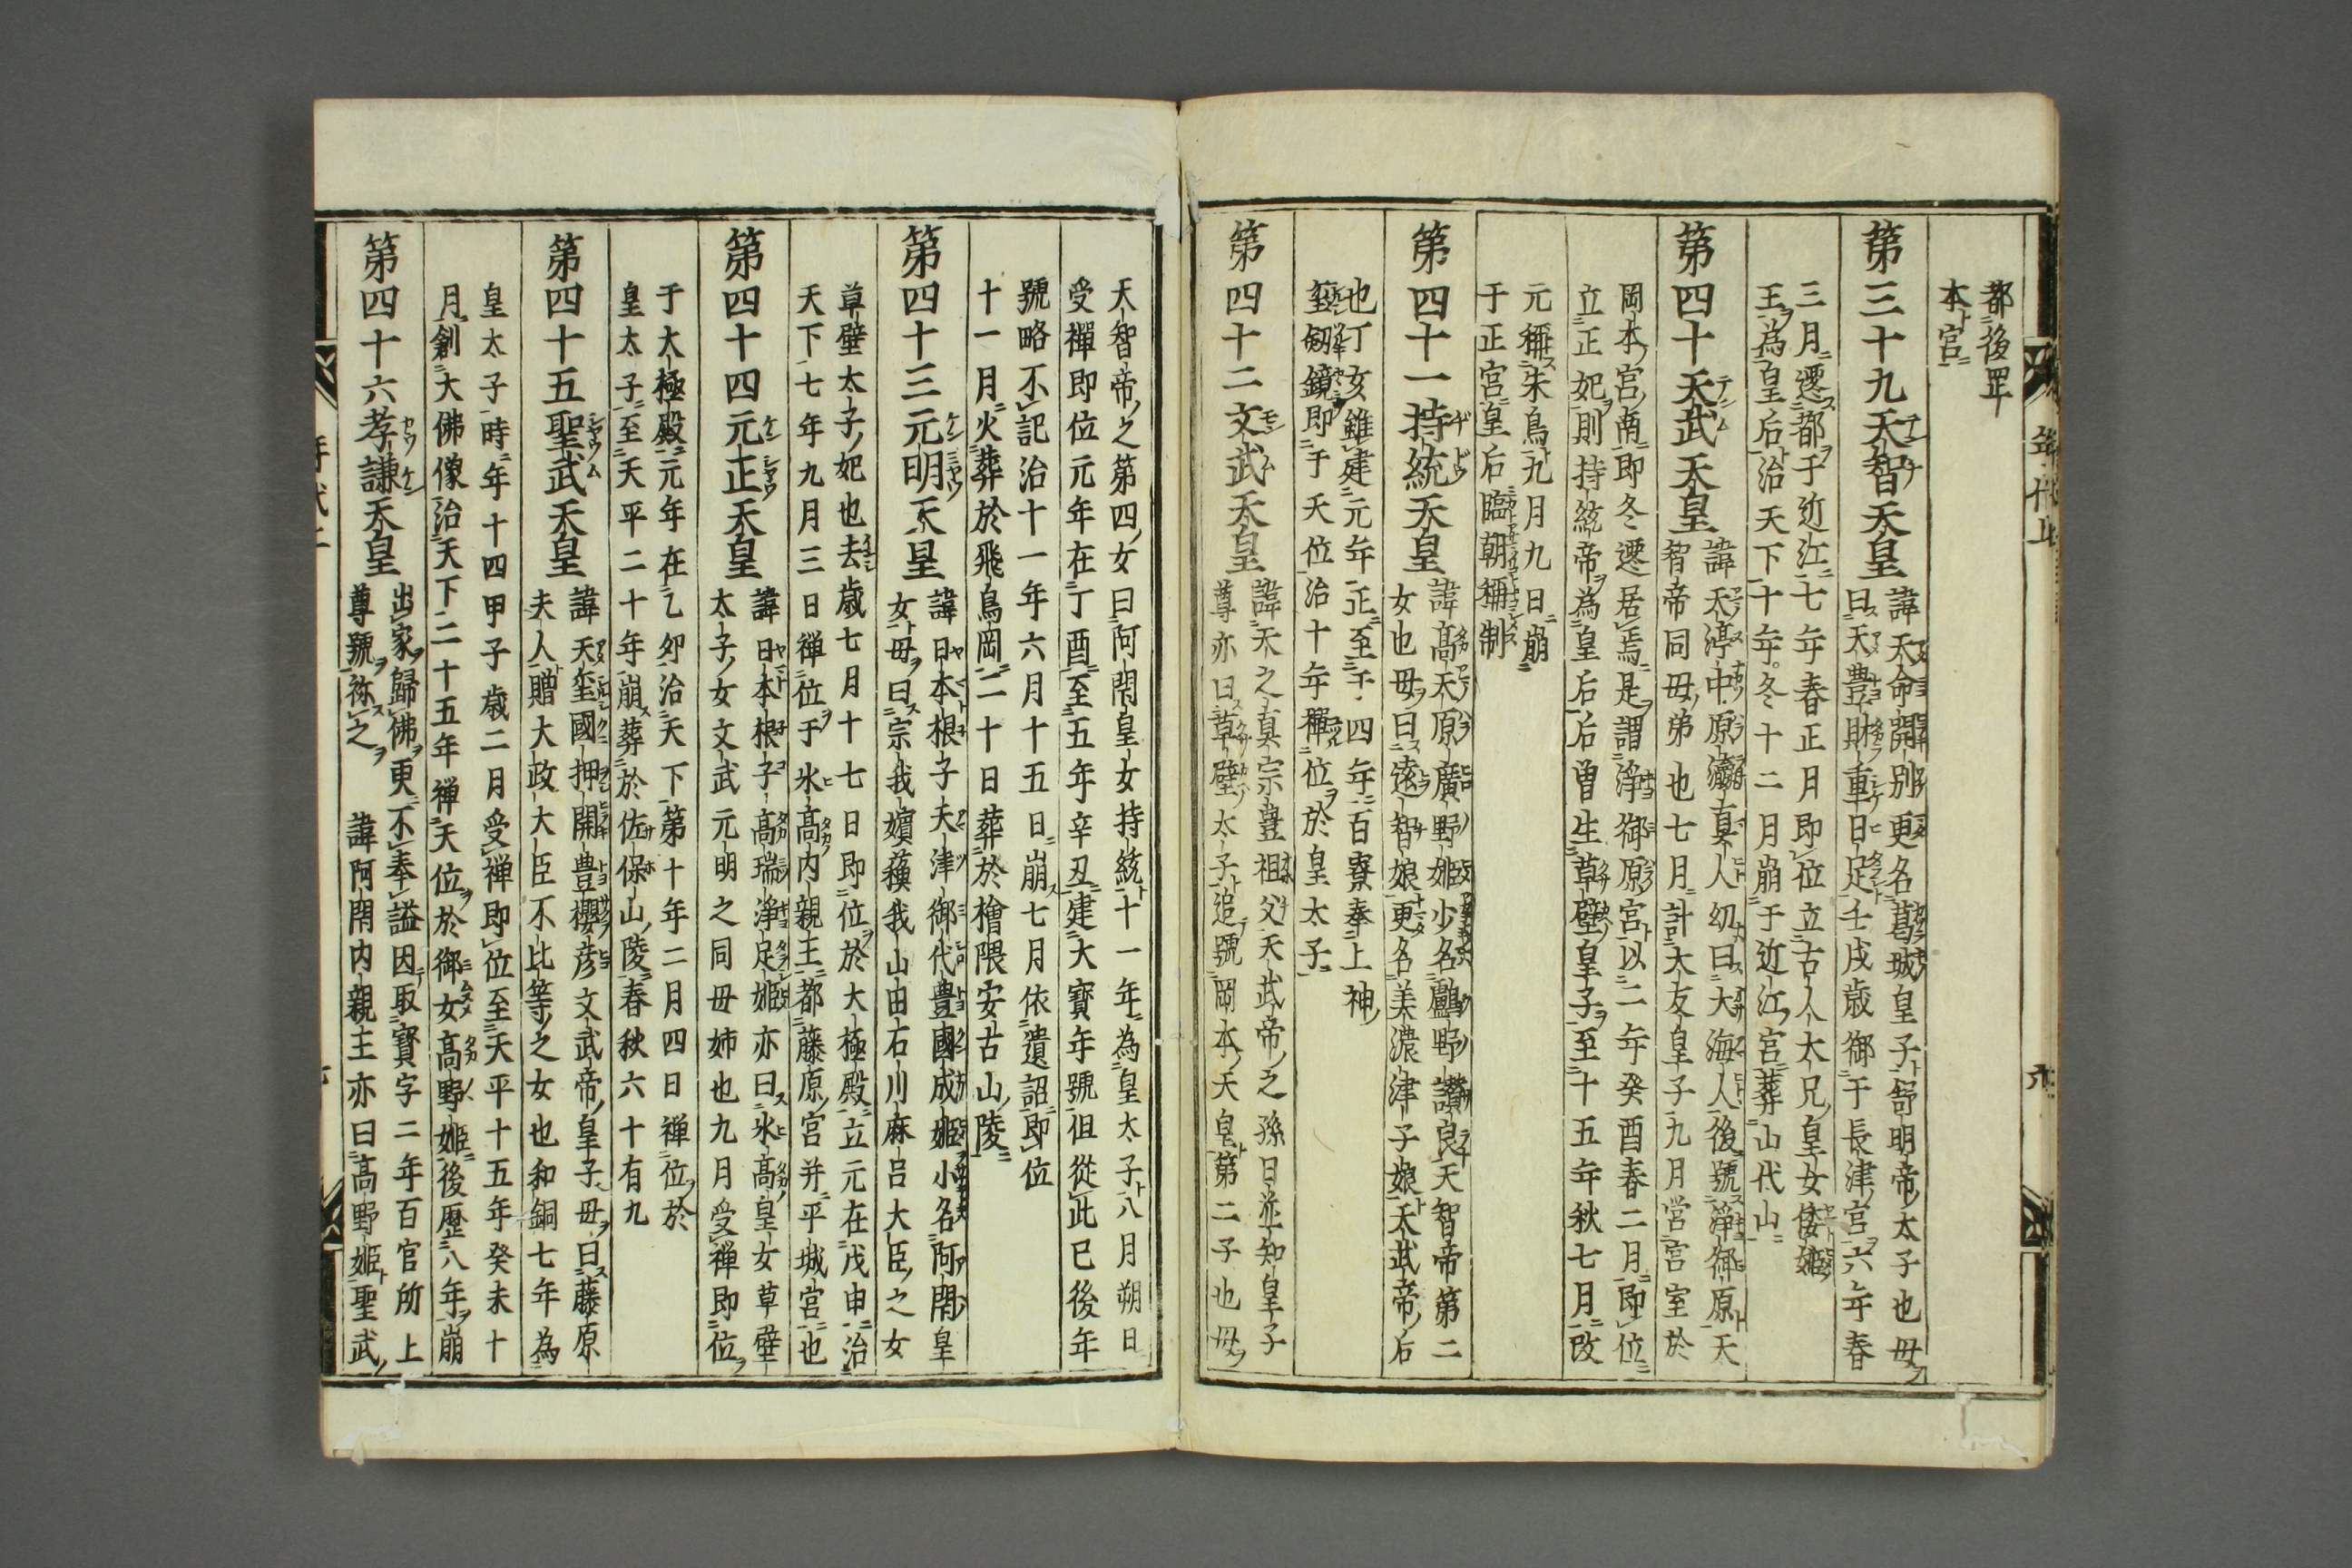 都後岡
本宮
第三十九天智天皇
諱天命開別更名葛城皇子舒明帝太子也母
曰天豊財重日足壬戌歳御于長津宮六年春
三月遷都于近江七年春正月即位立古人太兄皇女倭姫
王為皇后治天下十年冬十二月崩于近江宮葬山代山
第四十天武天皇
諱天渟中原瀛真人幼曰大海人後號淨御原天
智帝同母弟也七月討大友皇子九月営宮室於
岡本宮南即冬遷居焉是謂淨御原宮以二年癸酉春二月即位
立正妃則持統帝為皇后后曽生草壁皇子至十五年秋七月改
元稱朱鳥九月九日崩
于正宮皇后臨朝稱制
第四十一持統天皇
諱髙天原廣野姫少名鸕野讃良天智帝第二
女也母曰遠智娘更名美濃津子娘天武帝后
也丁亥雖建元年正至于四年百寮奉上神
璽劔鏡即于天位治十年禪位於皇太子
第四十二文武天皇
諱天之真宗豊祖父天武帝之孫日並知皇子
尊亦曰草壁太子追號岡本天皇第二子也母
天智帝之第四女曰阿閇皇女持統十一年為皇太子八月朔日
受禪即位元年在丁酉至五年辛丑建大寶年號但從此已後年
號略不記治十一年六月十五日崩七月依遺詔即位
十一月火葬於飛鳥岡二十日葬於檜隈安古山陵
第四十三元明天皇
諱日本根子天津御代豊國成姫小名阿閇皇
女母曰宗我嬪蘓我山田石川麻呂大臣之女
草壁太子妃也去歳七月十七日即位於大極殿立元在戊申治
天下七年九月三日禅位于氷髙内親王都藤原宮并平城宮也
第四十四元正天皇
諱日本根子髙瑞淨足姫亦曰氷髙皇女草壁
太子女文武元明之同母姉也九月受禅即位
于大極殿元年在乙卯治天下第十年二月四日禅位於
皇太子至天平二十年崩葬於佐保山陵春秋六十有九
第四十五聖武天皇
諱天璽國押開豊櫻彦文武帝皇子母曰藤原
夫人贈大政大臣不比等之女也和銅七年為
皇太子時年十四甲子歳二月受禅即位至天平十五年癸未十
月創大佛像治天下二十五年禅天位於御女髙野姫後歴八年崩
第四十六孝謙天皇
出家歸佛更不奉謚因取寳字二年百官所上
尊號祢之　諱阿閇内親王亦曰髙野姫聖武